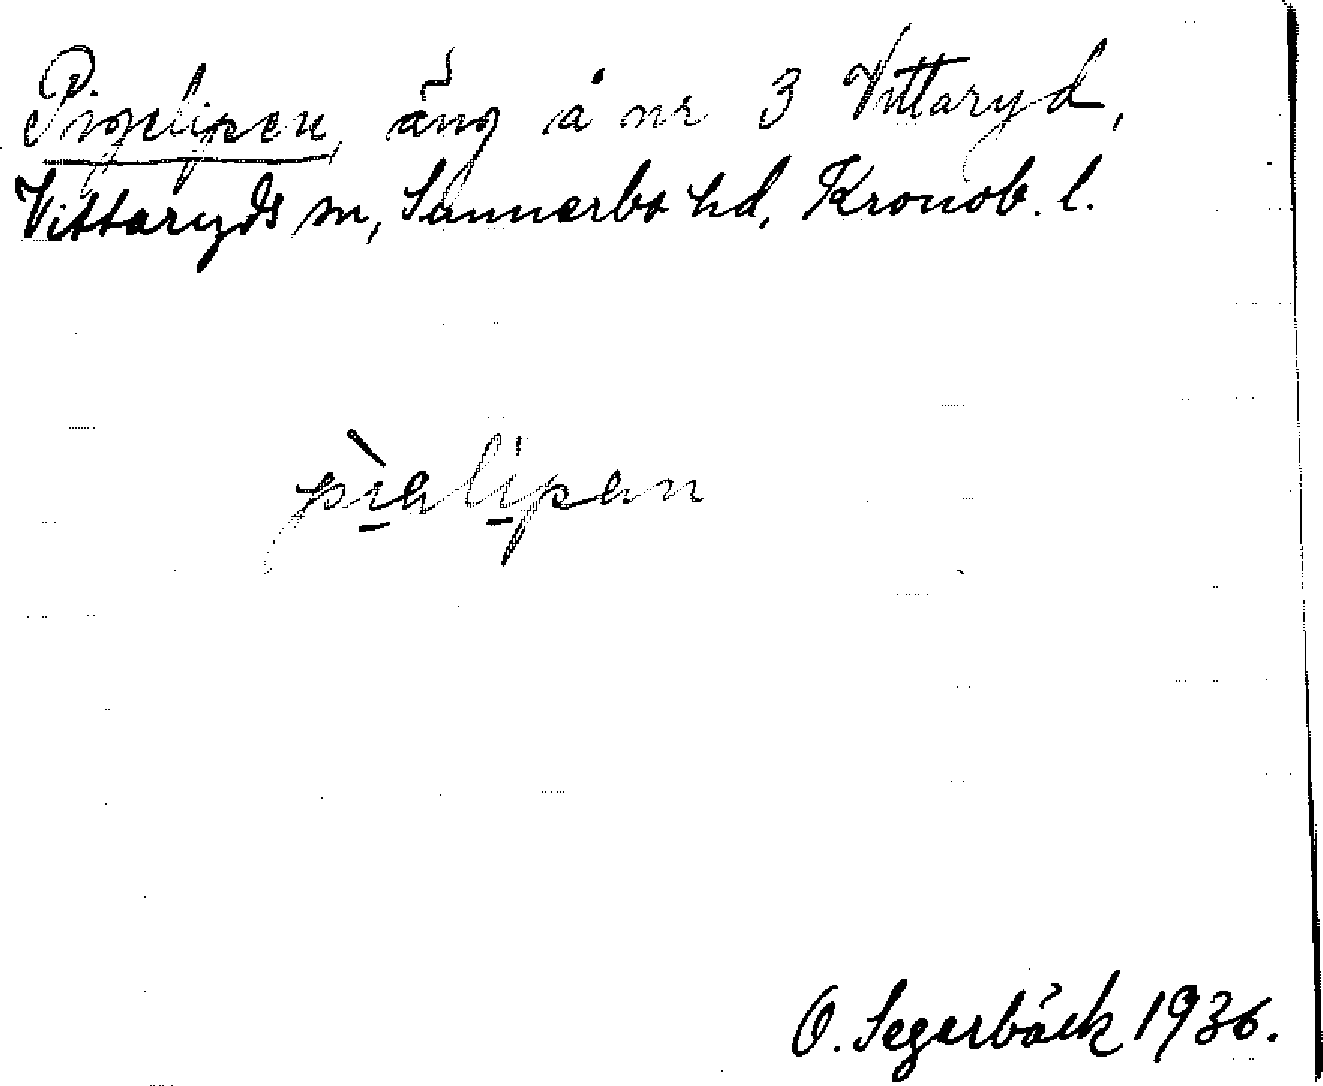 Pigelipen, äng å nr 3 Vittaryd,
Vittaryds sn, Sunnerbo hd, Kronob. l.
pìalipan
O. Segerbäck 1936.